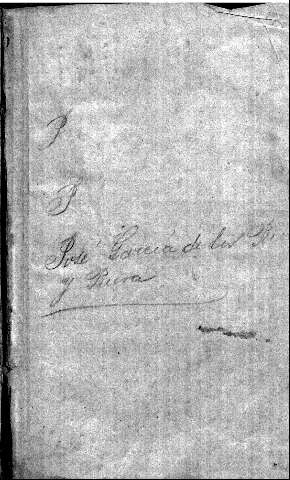 P
P
José García de los R.
y Riera